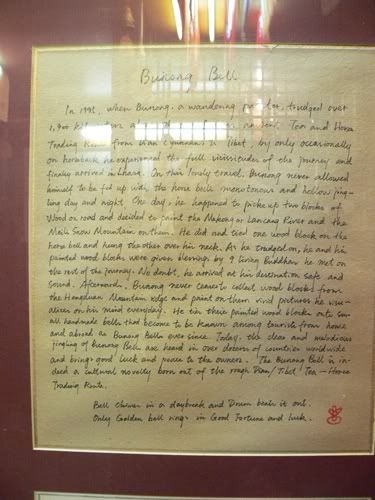 Bunong Bell
In 1995, when Bunong, a wandering painter, trudged over
1,900 along ancient Tea and Horse
Trading Route from Dian (Yunnan) to Tibet, by only occasionally
on horseback he experienced the full vicissitudes of the journey and
finally arrived in Lhasa. On this lonely travel, Bunong never allowed
himself to be fed up with the horse bells monotonous and hollow jing-
ling day and night. One day, he happened to pick up two blocks of
Wood on road and decided to paint the Mekong or Lancang River and the
Meili Snow Mountain on them. He did and tied one wood block on the
horse bell and hung the other over his neck. As he trudged on, he and his
painted wood blocks were given blessings by 9 living Buddhas he met on
the rest of the journey. No doubt, he arrived at his destination safe and
sound. Afterwards, Bunong never ceases to collect wood blocks from
the Hengduan Mountain edge and paint on them vivid pictures he visu-
alizes on his mind everyday. He tie these painted wood blocks onto small
handmade bells that become to be known among tourists from home
and abroad as Bunong Bells ever since. Today, the clear and melodious
jingling of Bunong Bell are heard in over dozens of countries worldwide
and brings good luck and peace to the owners. The Bunong Bell is in-
deed a cultural novelty born out of the rough Dian/Tibet Tea-Horse
Trading Route.
Bell chimes in a daybreak and Drum beats it out.
Only Golden bell rings in Good Fortune and luck.